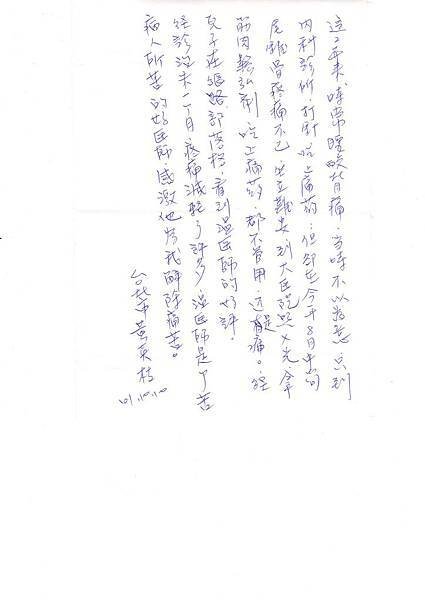 這二年來,時常腰酸背痛,當時不以為意,只到
內科診所,打針吃止痛葯,但卻在今年8月中旬
尾椎骨疼痛不已,坐立難安到大医院照X光,拿
筋肉鬆弛劑,吃止痛葯,都不管用,還是痛。經
兒子在網路部落格,看到溫医師的好評,
經診治未一ケ月,疼痛減輕了許多,溫医師是ケ苦
病人所苦的好医師,感激他為我解除痛苦。
台北市黃 枝
101.10.10